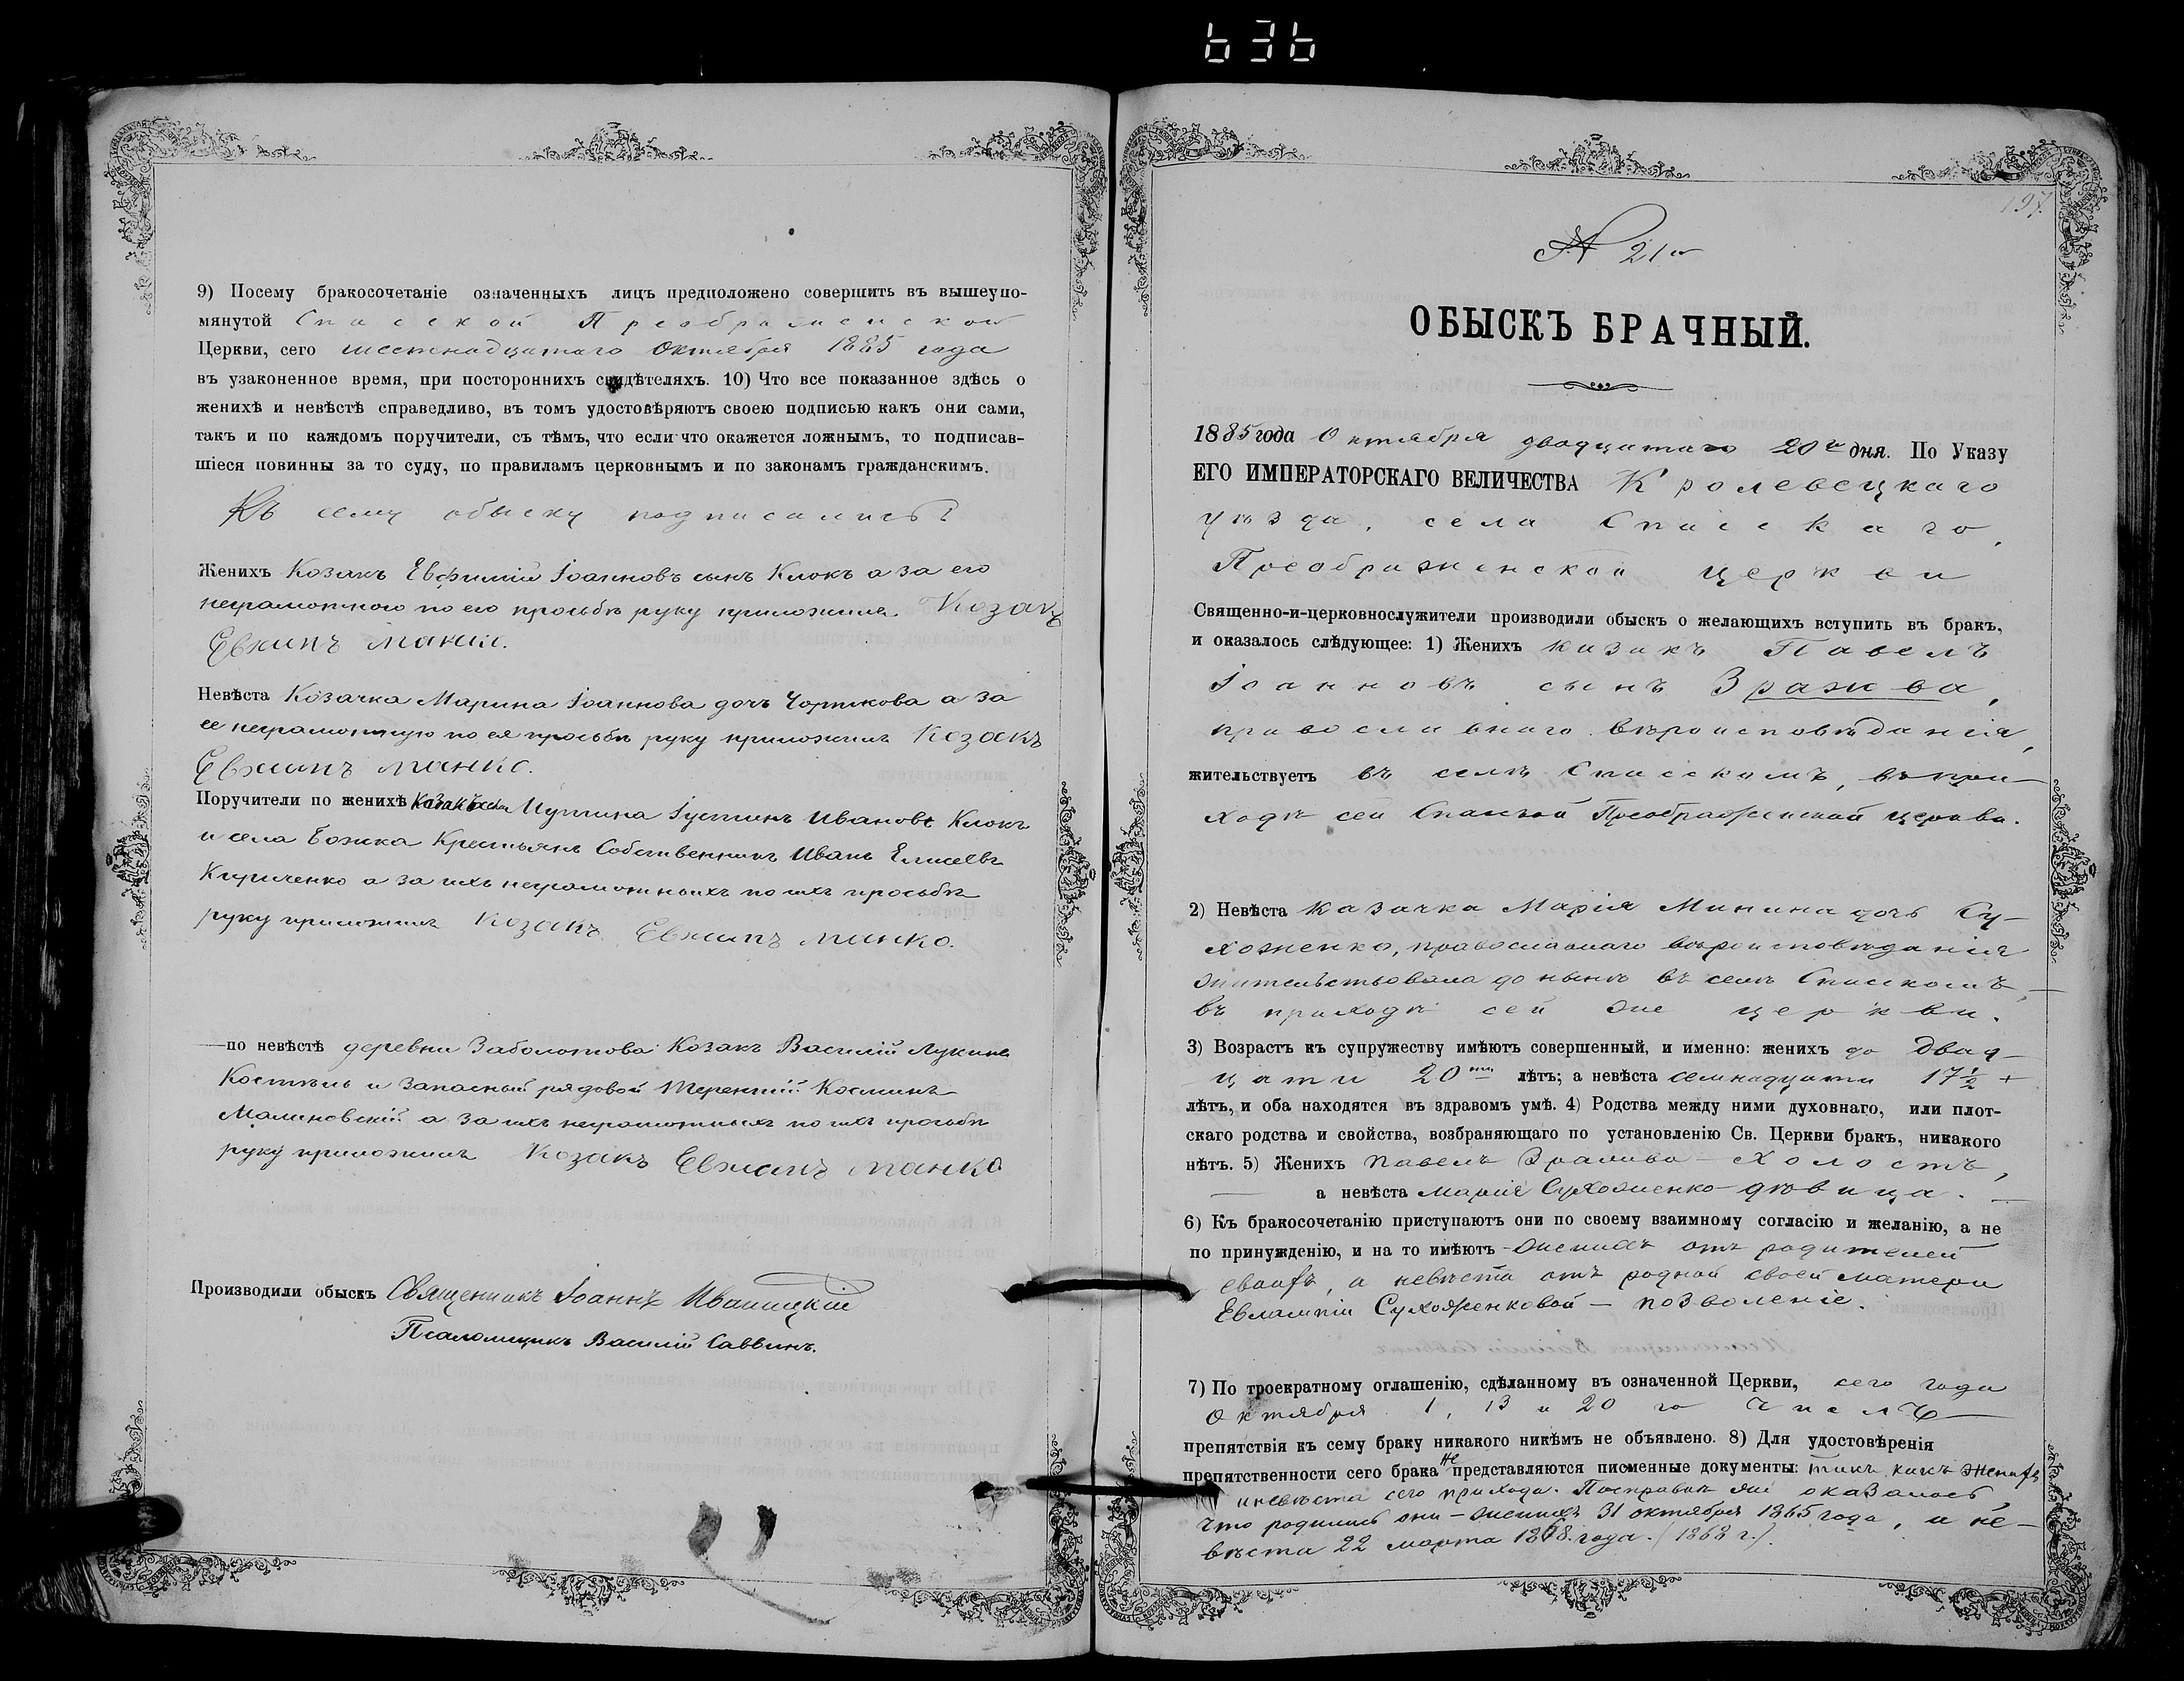 636
9) Посему бракосочетаніе означенныхъ лицъ предположено совершить въ вышеупо-
мянутой Спасской Преображенской
Церкви, сего шестнадцатаго Октября 1885 года
въ узаконенное время, при постороннихъ свидѣтеляхъ. 10) Что все показанное здѣсь о
женихѣ и невѣстѣ справедливо, въ томъ удостовѣряютъ своею подписью какъ они сами,
такъ и по каждомъ поручители, съ тѣмъ, что если что окажется ложнымъ, то подписав-
шіеся повинны за то суду, по правиламъ церковнымъ и по законамъ гражданскимъ.
Къ сему обыску подписались:
Женихъ Козакъ Евфимій Іоанновъ сынъ Клокъ а за его
неграмотного по его просьбѣ руку приложилъ Козакъ
Невѣста Козачка Марина Іоаннова дочь Чорткова а за
ее неграмотную по ея просьбѣ руку приложилъ Козакъ
Поручители по женихѣ Козакъ села Мутина Іустинъ Ивановъ Клокъ
и села Божка Крестьянъ Собственникъ Иванъ Елисеевъ
Кириченко а за ихъ неграмотныхъ по ихъ просьбѣ
руку приложилъ Козакъ
по невѣстѣ деревни Заболотова Козакъ Василій Лукинъ
Костѣль и Запасный рядовой Терентій Косминъ
Малиновскій а за ихъ неграмотныхъ по ихъ просьбѣ
руку приложилъ Козакъ
Производили обыскъ Священникъ Іоаннъ Иваницкій
Псаломщикъ Василій Саввинъ.
197
№ 21й
ОБЫСКЪ БРАЧНЫЙ.
1885 года Октября двадцатаго 20го дня. По Указу
ЕГО ИМПЕРАТОРСКАГО ВЕЛИЧЕСТВА Кролевецкаго
уѣзда, села Спасскаго,
Преображенской церкви
Священно-и-церковнослужители производили обыскъ о желающихъ вступить въ бракъ,
и оказалось слѣдующее: 1) Женихъ казакъ Павелъ
Іоанновъ сынъ Зражва,
православнаго вѣроисповѣданія,
жительствуетъ въ селѣ Спасскомъ, въ при-
ходѣ сей Спасской Преображенской церкви.
2) Невѣста казачка Марія Минина дочь Су-
хоженко, православнаго вѣроисповѣданія
жительствовала до нынѣ въ селѣ Спасскомъ,
въ приходѣ сей же церкви.
3) Возрастъ къ супружеству имѣютъ совершенный, и именно: женихъ до двад-
цати 20ти лѣтъ; а невѣста семнадцати 17½
лѣтъ, и оба находятся въ здравомъ умѣ. 4) Родства между ними духовнаго, или плот-
скаго родства и свойства, возбраняющаго по установленію Св. Церкви бракъ, никакого
нѣтъ. 5) Женихъ Павелъ Зражва - холостъ,
а невѣста Марія Сухоженко - дѣвица.
6) Къ бракосочетанію приступаютъ они по своему взаимному согласію и желанію, а не
по принужденію, и на то имѣютъ - женихъ отъ родителей
своихъ, а невѣста отъ родной своей матери
Евлампіи Сухоженковой - позволеніе.
7) По троекратному оглашенію, сдѣланному въ означенной Церкви, сего года
октября 1, 13 и 20 го числъ
препятствія къ сему браку никакого никѣмъ не объявлено. 8) Для удостовѣренія
препятственности сего брака не представляются писменные документы: такъ какъ женихъ
и невѣста сего прихода. По справкѣ же оказалось,
что родились они - женихъ 31 октября 1865 года, и не-
вѣста 22 марта 1868. года. (1868 г.).